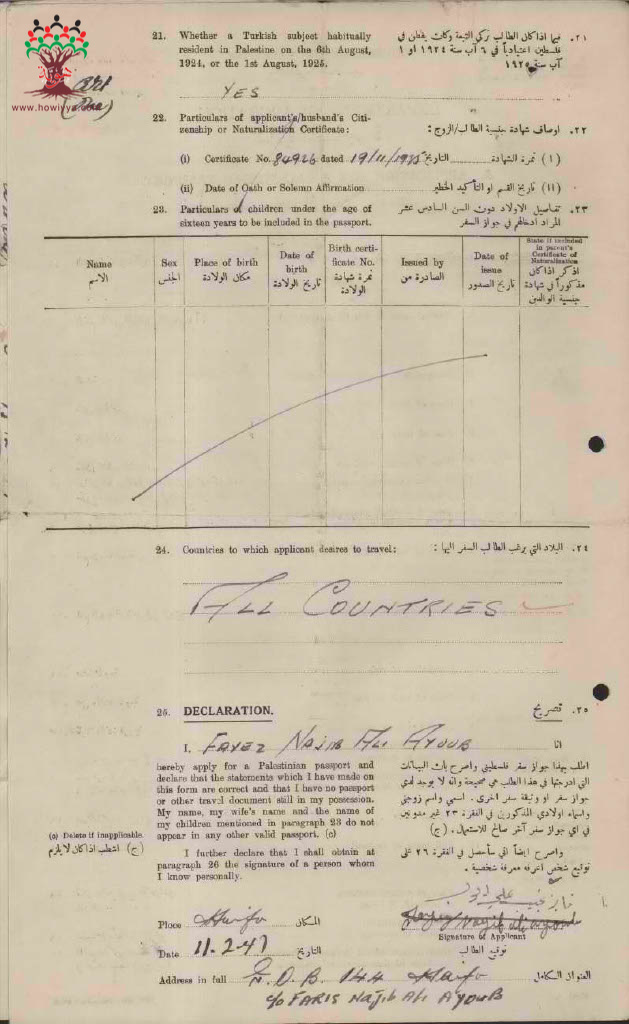 www.howiyya.com
21. Whether a Turkish subject habitually
resident in Palestine on the 6th August,
1924, or the 1st August, 1925.
٢١. فيما اذا كان الطالب تركي التبعة وكان يقطن في
فلسطين اعتيادياً في ٦ آب سنة ١٩٢٤ او ١
آب سنة ١٩٢٥
YES
22. Particulars of applicant's/husband's Citi-
zenship or Naturalization Certificate:
٢٢. اوصاف شهادة جنسية الطالب/الزوج:
(i) Certificate No. 84926 dated 19/11/19 التاريخ (١) نمرة الشهادة
(ii) Date of Oath or Solemn Affirmation (١١) تاريخ القسم او التأكيد الخطير
23. Particulars of children under the age of
sixteen years to be included in the passport.
٢٣. تفاصيل الاولاد دون السن السادس عشر
المراد ادخالهم في جواز السفر
Name الاسم
Sex الجنس
Place of birth مكان الولادة
Date of birth تاريخ الولادة
Birth certi-
ficate No.
نمرة شهادة
الولادة
Issued by الصادرة من
Date of issue تاريخ الصدور
State if included
in parent's
Certificate of
Naturalization
اذكر اذا كان
مذكوراً في شهادة
جنسية الوالدين
24. Countries to which applicant desires to travel: ٢٤. البلاد التي يرغب الطالب السفر اليها:
ALL COUNTRIES
25. DECLARATION. ٢٥. تصريح
I, FAYEZ NAJIB ALI AYOUB انا
hereby apply for a Palestinian passport and
declare that the statements which I have made on
this form are correct and that I have no passport
or other travel document still in my possession.
My name, my wife's name and the name of
my children mentioned in paragraph 23 do not
appear in any other valid passport. (c)
اطلب بهذا جواز سفر فلسطيني واصرح بان البيانات
التي ادرجتها في هذا الطلب هي صحيحة وانه لا يوجد لدي
جواز سفر او وثيقة سفر اخرى. اسمي واسم زوجتي
واسماء اولادي المذكورين في الفقرة ٢٣ غير مدونين
في اي جواز سفر آخر صالح للاستعمال. (ج)
(c) Delete if inapplicable.
(ج) اشطب اذا كان لا يلزم
I further declare that I shall obtain at
paragraph 26 the signature of a person whom
I know personally.
واصرح ايضاً اني سأحصل في الفقرة ٢٦ على
توقيع شخص اعرفه معرفة شخصية.
فايز نجيب علي ايوب
Place Haifa المكان
Signature of Applicant
Date 11.2.47 التاريخ توقيع الطالب
Address in full P.O.B. 144 Haifa العنوان الكامل
c/o FARIS Najib Ali AYOUB